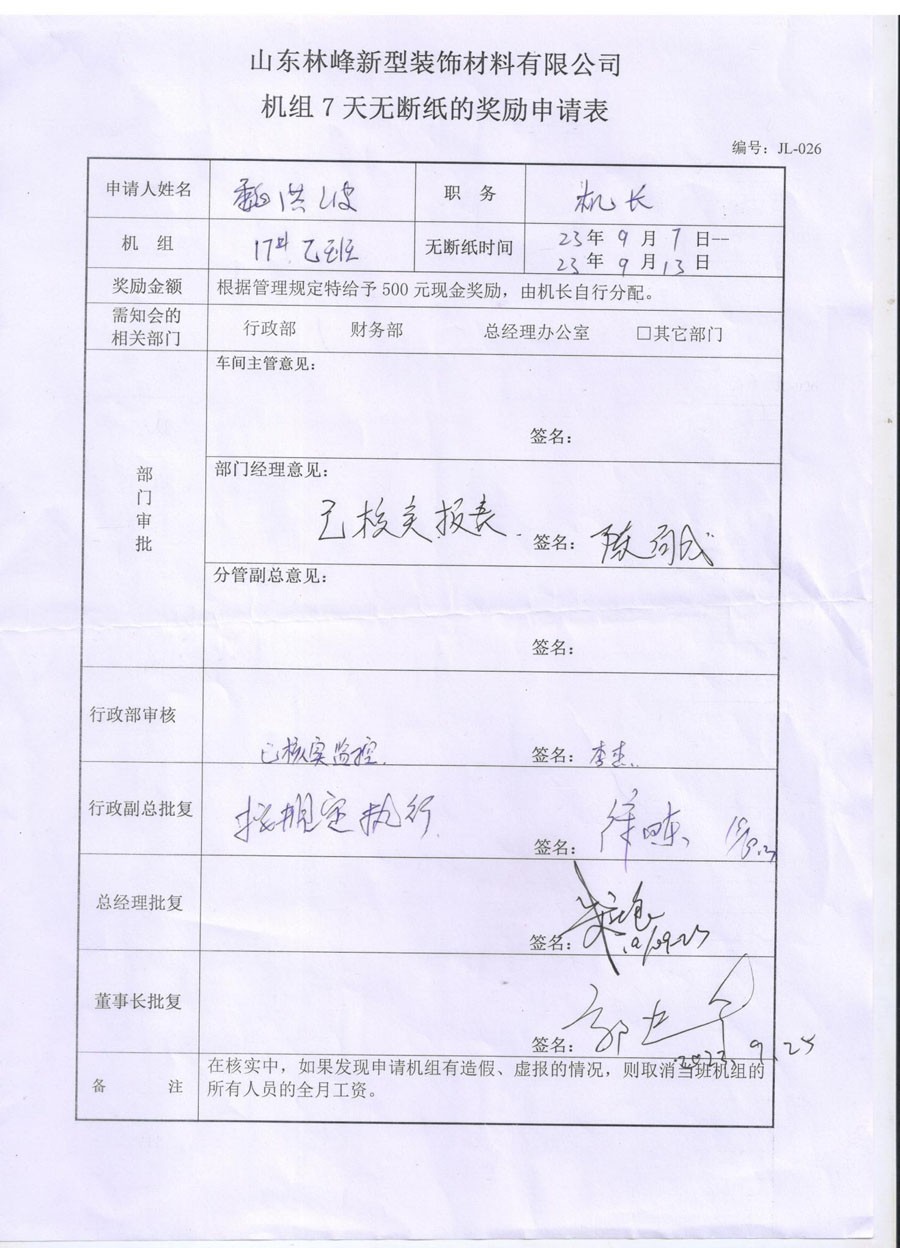 山东林峰新型装饰材料有限公司
机组 7 天无断纸的奖励申请表
编号：JL-026
申请人姓名 魏洪波 职 务 机长
机 组 17# 乙班 无断纸时间 23年 9 月 7 日--
23年 9 月 13 日
奖励金额 根据管理规定特给予 500 元现金奖励，由机长自行分配。
需知会的
相关部门 行政部 财务部 总经理办公室 □其它部门
车间主管意见：
签名：
部门审批
部门经理意见：
已核实报表. 签名：
分管副总意见：
签名：
行政部审核
已核实监控. 签名：李杰.
行政副总批复 按规定执行 签名：
总经理批复
签名：
董事长批复
签名：
2023. 9. 25
备 注 在核实中，如果发现申请机组有造假、虚报的情况，则取消当班机组的
所有人员的全月工资。